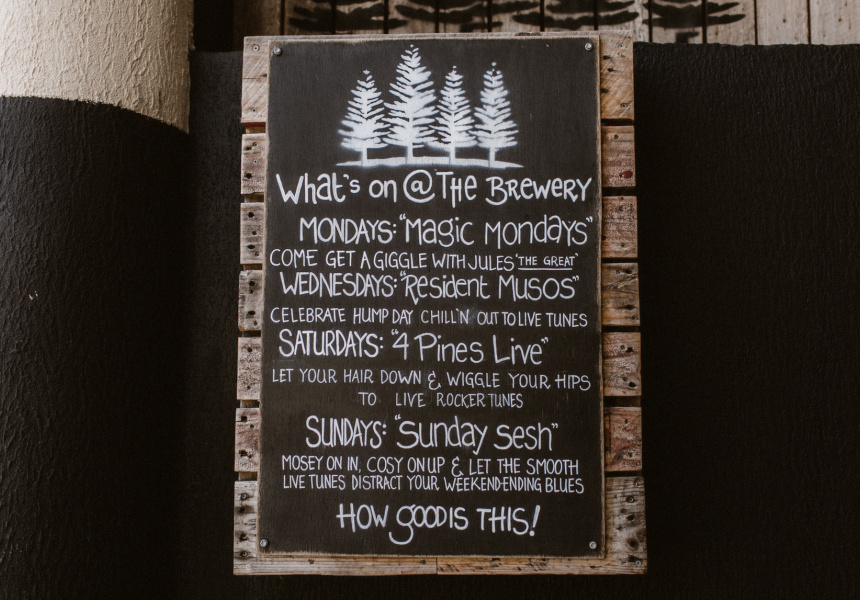 What's on @ The Brewery
MONDAYS: "Magic Mondays"
COME GET A GIGGLE WITH JULES 'THE GREAT'
WEDNESDAYS: "Resident Musos"
CELEBRATE HUMP DAY CHILL'N OUT TO LIVE TUNES
SATURDAYS: "4 Pines Live"
LET YOUR HAIR DOWN & WIGGLE YOUR HIPS
TO LIVE ROCKER TUNES
SUNDAYS: "Sunday Sesh"
MOSEY ON IN, COSY ON UP & LET THE SMOOTH
LIVE TUNES DISTRACT YOUR WEEKEND-ENDING BLUES
HOW GOOD IS THIS!